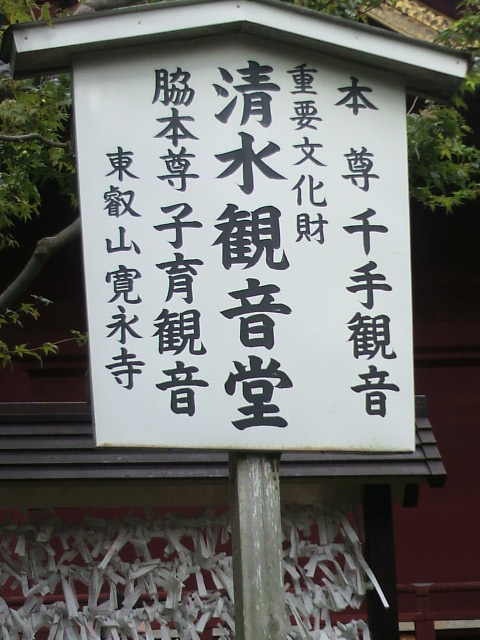 本尊千手観音
重要文化財
清水観音堂
脇本尊子育観音
東叡山寛永寺